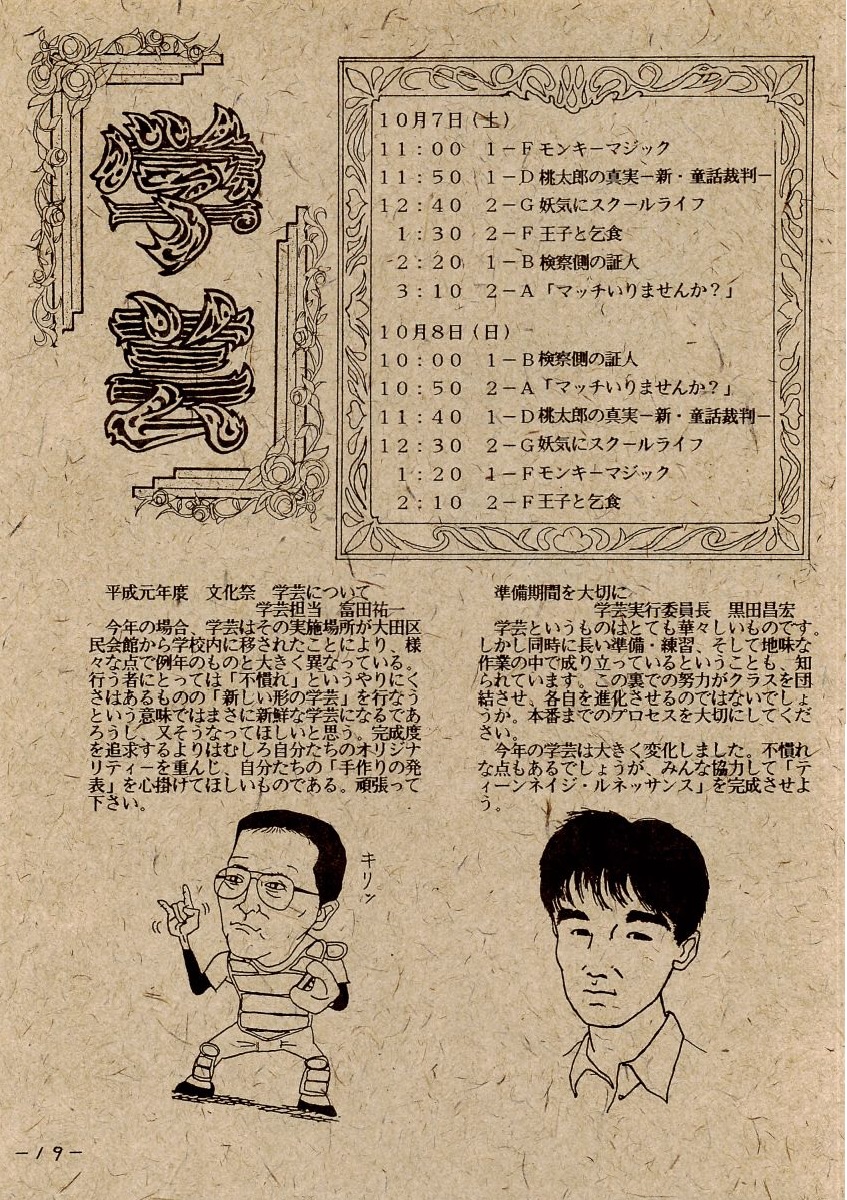 学芸
10月7日(土)
11:00 1-Fモンキーマジック
11:50 1-D桃太郎の真実-新・童話裁判-
12:40 2-G妖気にスクールライフ
1:30 2-F王子と乞食
2:20 1-B検察側の証人
3:10 2-A「マッチいりませんか?」
10月8日(日)
10:00 1-B検察側の証人
10:50 2-A「マッチいりませんか?」
11:40 1-D桃太郎の真実-新・童話裁判-
12:30 2-G妖気にスクールライフ
1:20 1-Fモンキーマジック
2:10 2-F王子と乞食
平成元年度 文化祭 学芸について
学芸担当 富田祐一
今年の場合、学芸はその実施場所が大田区
民会館から学校内に移されたことにより、様
々な点で例年のものと大きく異なっている。
行う者にとっては「不慣れ」というやりにく
さはあるものの「新しい形の学芸」を行なう
という意味ではまさに新鮮な学芸になるであ
ろうし、又そうなってほしいと思う。完成度
を追求するよりはむしろ自分たちのオリジナ
リティーを重んじ、自分たちの「手作りの発
表」を心掛けてほしいものである。頑張って
下さい。
準備期間を大切に
学芸実行委員長 黒田昌宏
学芸というものはとても華々しいものです。
しかし同時に長い準備・練習、そして地味な
作業の中で成り立っているということも、知
られています。この裏での努力がクラスを団
結させ、各自を進化させるのではないでしょ
うか。本番までのプロセスを大切にしてくだ
さい。
今年の学芸は大きく変化しました。不慣れ
な点もあるでしょうが、みんな協力して「テ
ィーンネイジ・ルネッサンス」を完成させよ
う。
キリッ
-19-